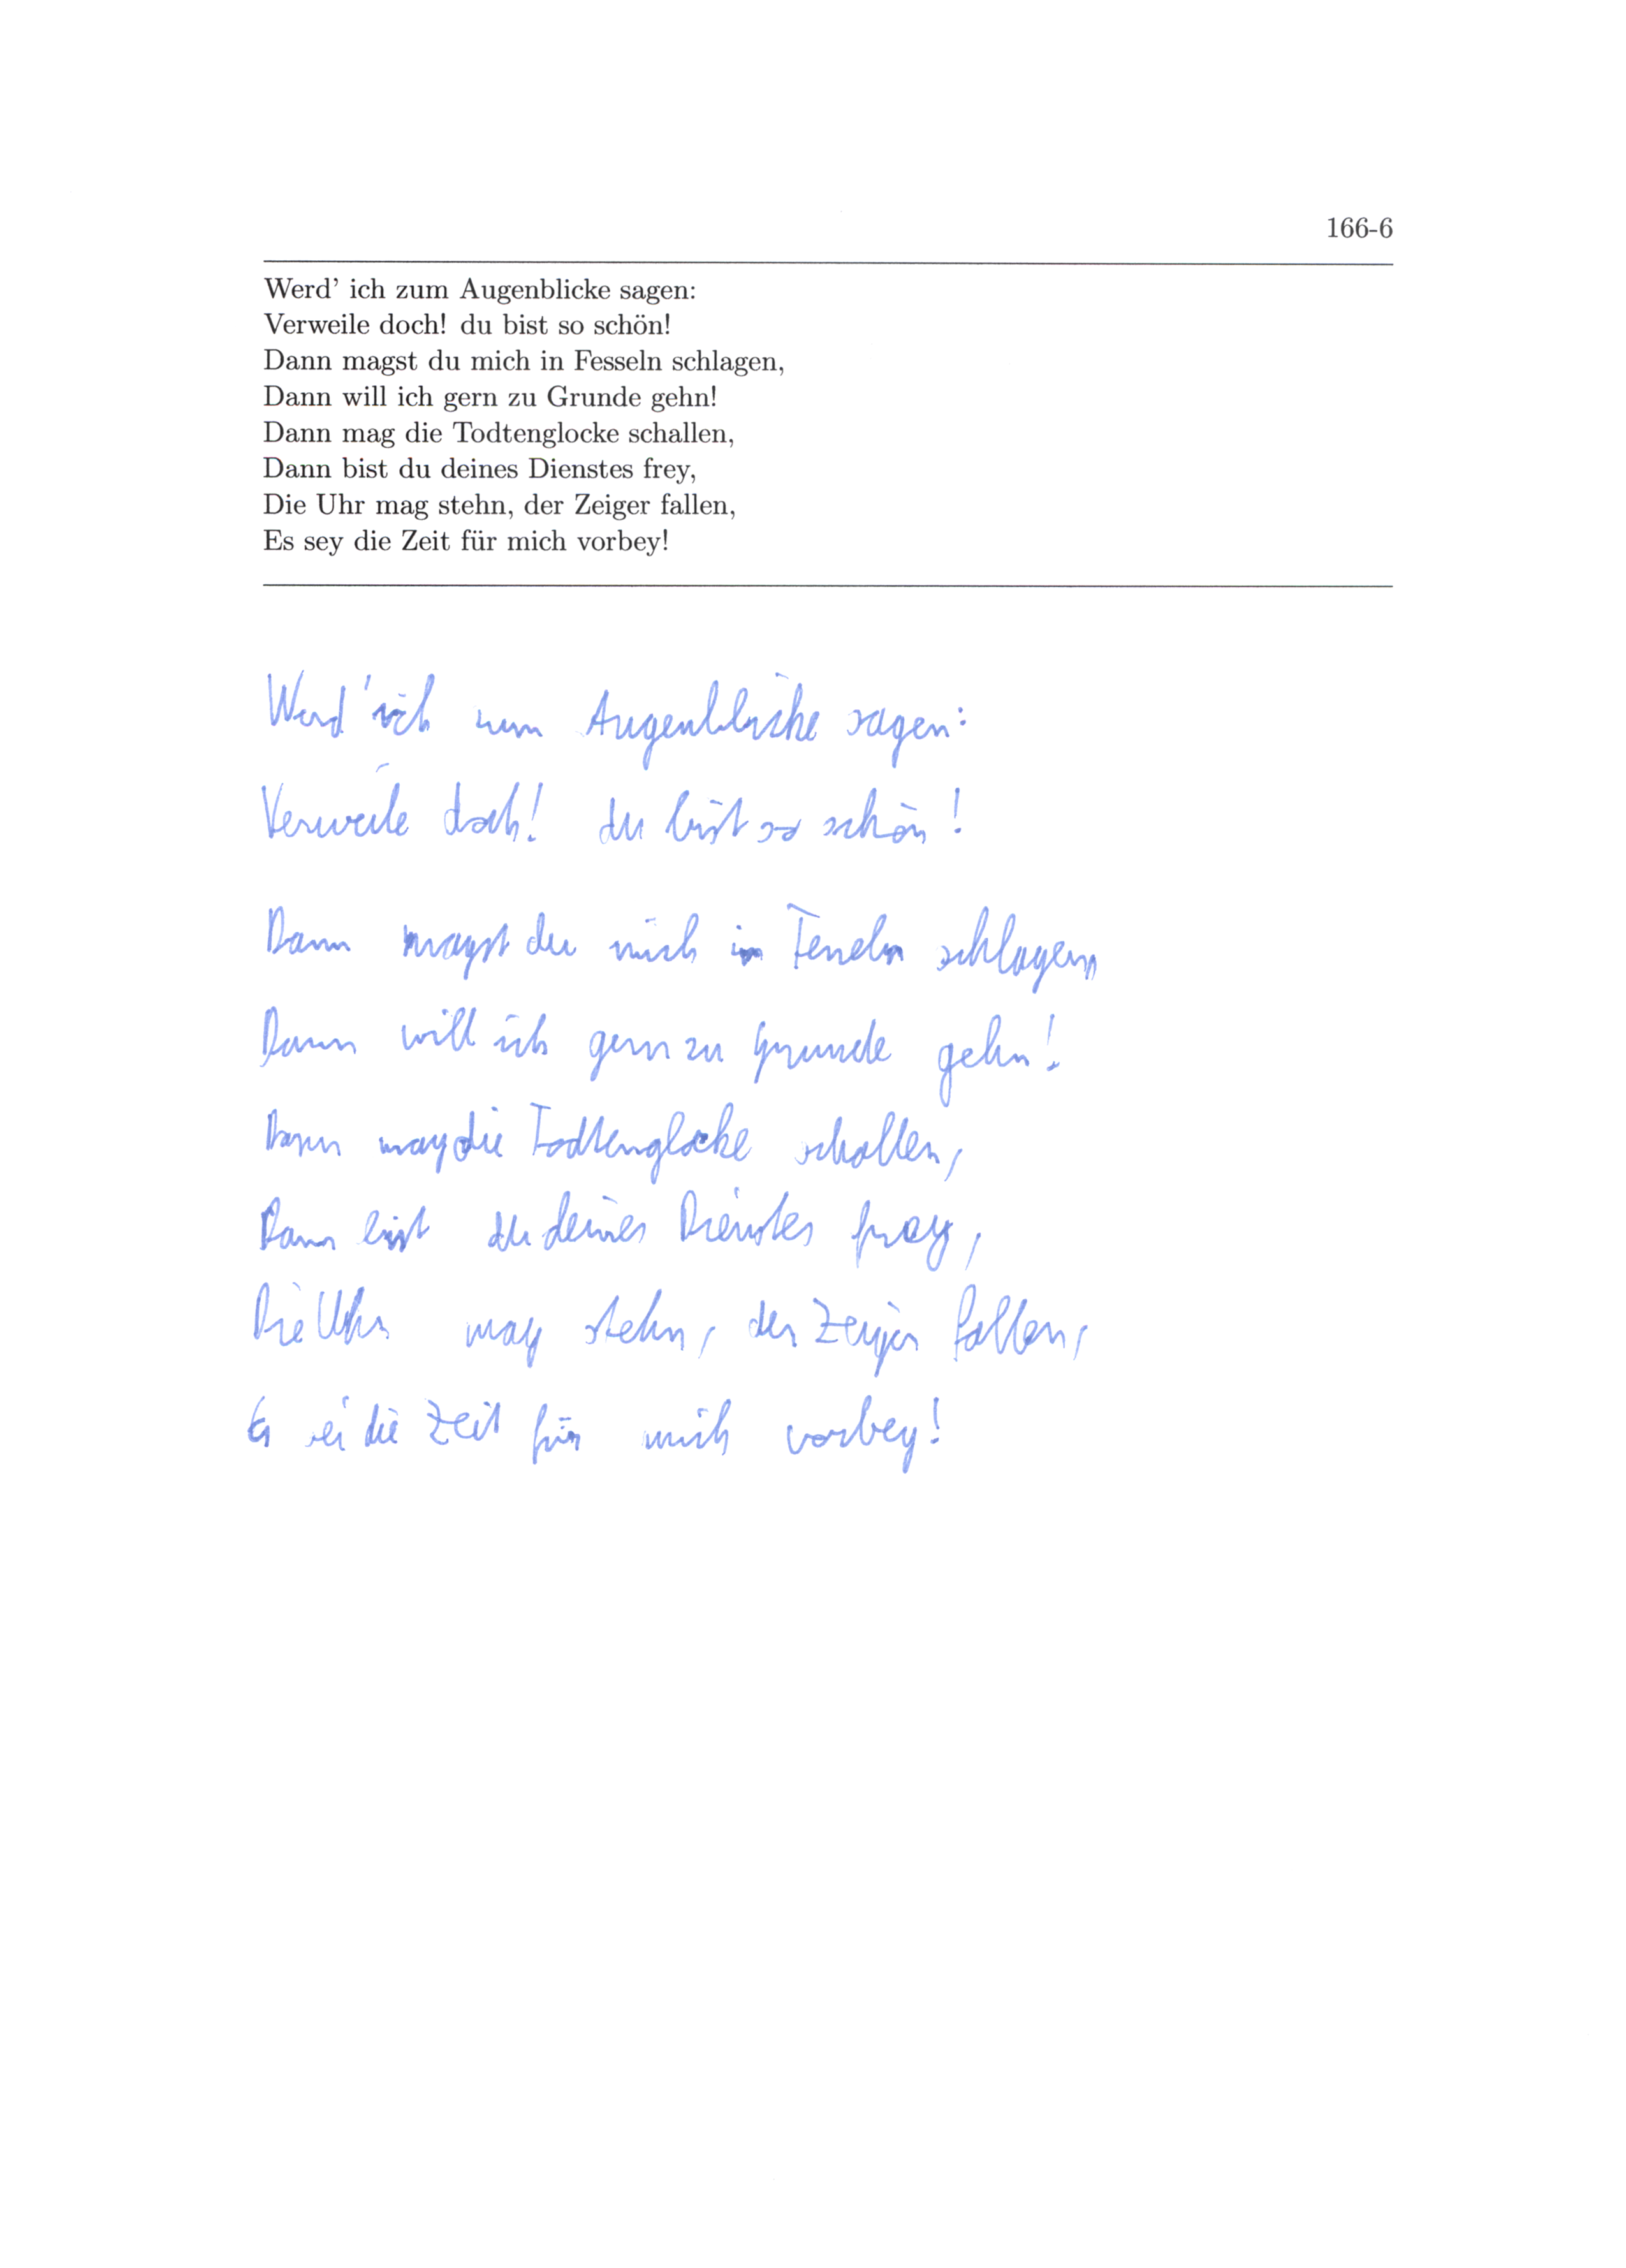 166-6
Werd' ich zum Augenblicke sagen:
Verweile doch! du bist so schön!
Dann magst du mich in Fesseln schlagen,
Dann will ich gern zu Grunde gehn!
Dann mag die Todtenglocke schallen,
Dann bist du deines Dienstes frey,
Die Uhr mag stehn, der Zeiger fallen,
Es sey die Zeit für mich vorbey!
Werd' ich zum Augenblicke sagen:
Verweile doch! du bist so schön!
Dann magst du mich in Fesseln schlagen
Dann will ich gern zu Grunde gehn!
Dann mag die Todtenglocke schallen,
Dann bist du deines Dienstes frey,
Die Uhr mag stehn, der Zeiger fallen,
Es sei die Zeit für mich vorbey!